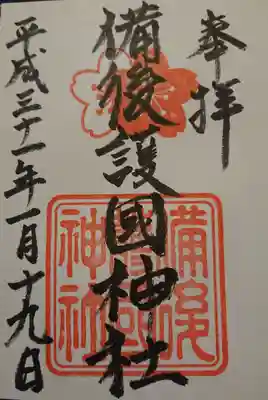 奉拝
備後護國神社
平成三十一年一月十九日
備後
護國
神社